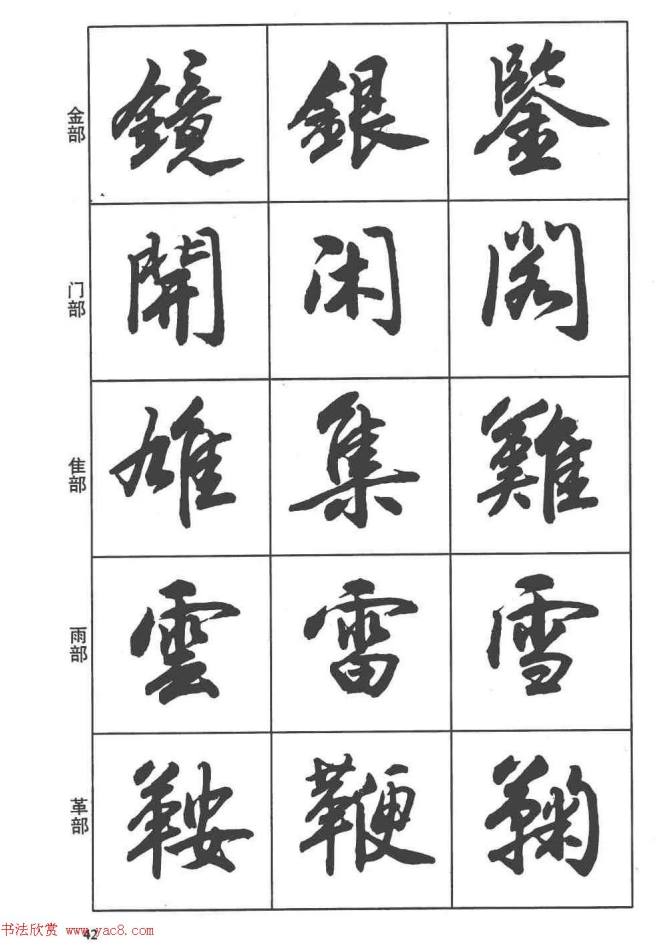 金部 鏡 銀 鑒
门部 開 闲 閣
隹部 雄 集 難
雨部 雲 雷 雪
革部 鞍 鞭 鞠
42
书法欣赏 www.yac8.com